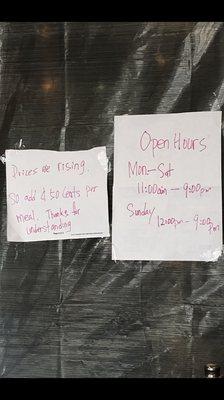 Prices are rising.
SO add $ 50 Cents per
meal. Thanks for
understanding
Open Hours
Mon-Sat
11:00am - 9:00pm
Sunday
12:00pm - 9:00pm